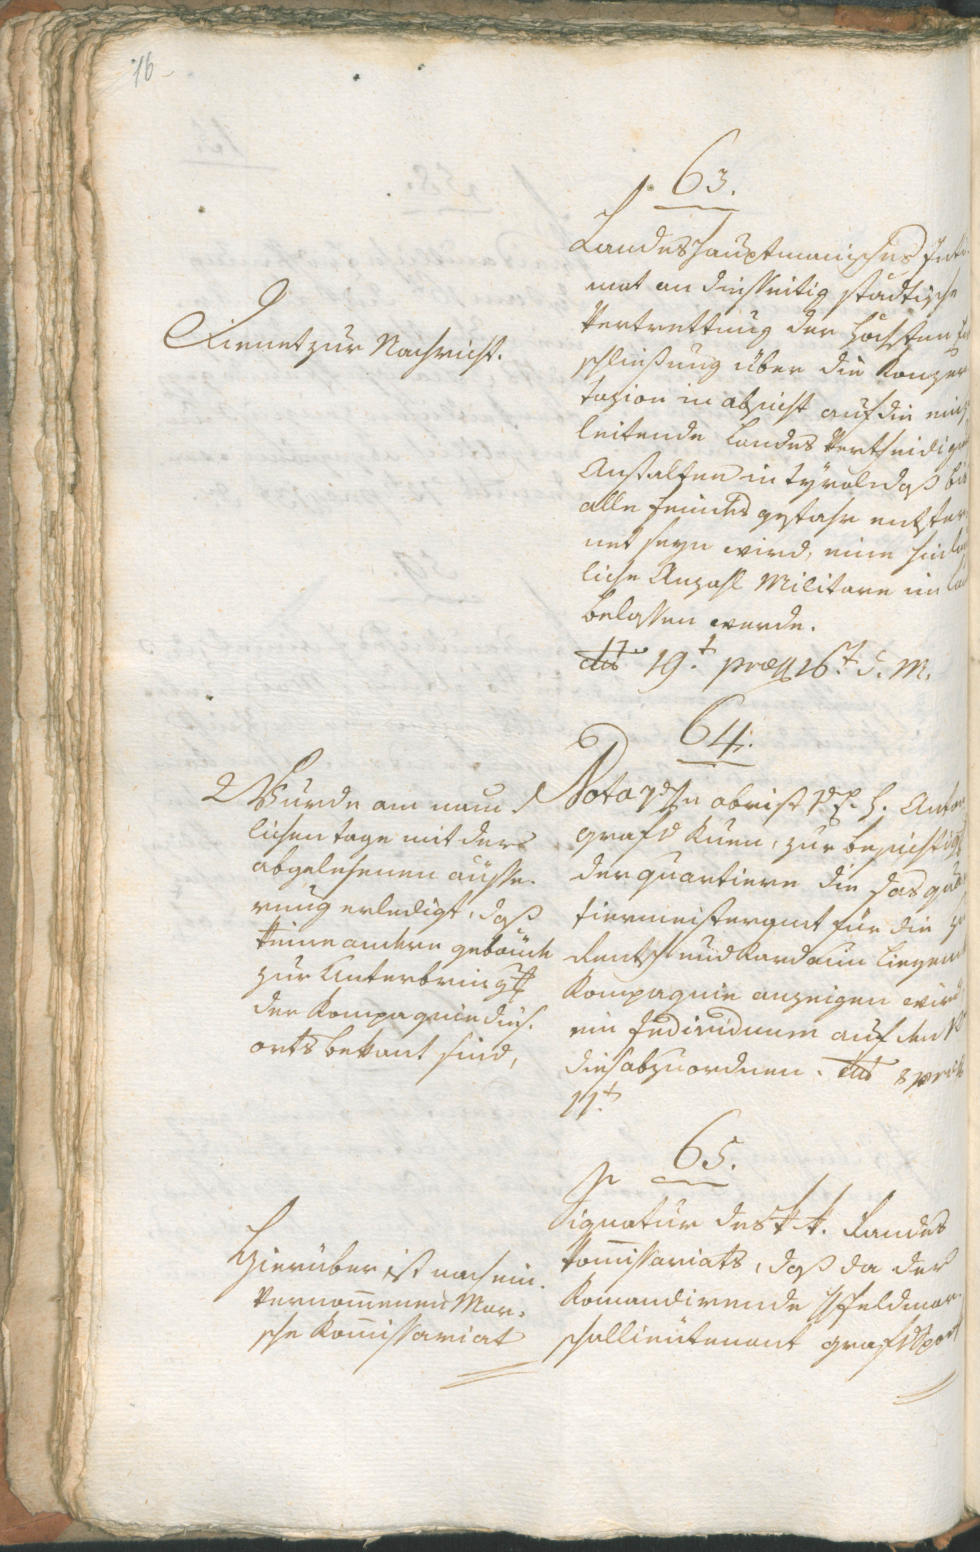 16
63.
Dienet zur Nachricht.
Landeshauptmanisches Inti-
mat an diesseitig städtische
Vertrettung der höchsten
schliessung über die Konzer
tazion in absicht auf die ein
leitende Landes Vertheidig
Anstalten in Tÿrol daß bis
alle feindes gefahr entfer
net seyn wird, eine hinlän
liche Anzahl Militare im
belassen werde.
dto 19t præs 26t d. M.
64.
Wurde am näm
lichen tage mit der
abgelesenen äusse-
rung erledigt, daß
keine andere gebäude
zur Unterbringung
der Kompagnie dies
orts bekant sind,
Nota des obrist H. Anton
graf v Kuen, zur besichtig
der quartiere die das quar
tiermeisteramt für die zu
Rentsch und Kardaun liegende
Kompagnie anzeigen wird
ein Individuum auf den
dies abzuordnen. dto &
11t
65.
Hierüber ist nach ein-
vernommenen Mar-
sche Kommissariat
Signatur des k. k. Landes
Kommissariats, daß da der
Komandirende Feldmar-
schallieutenant graf v Spork